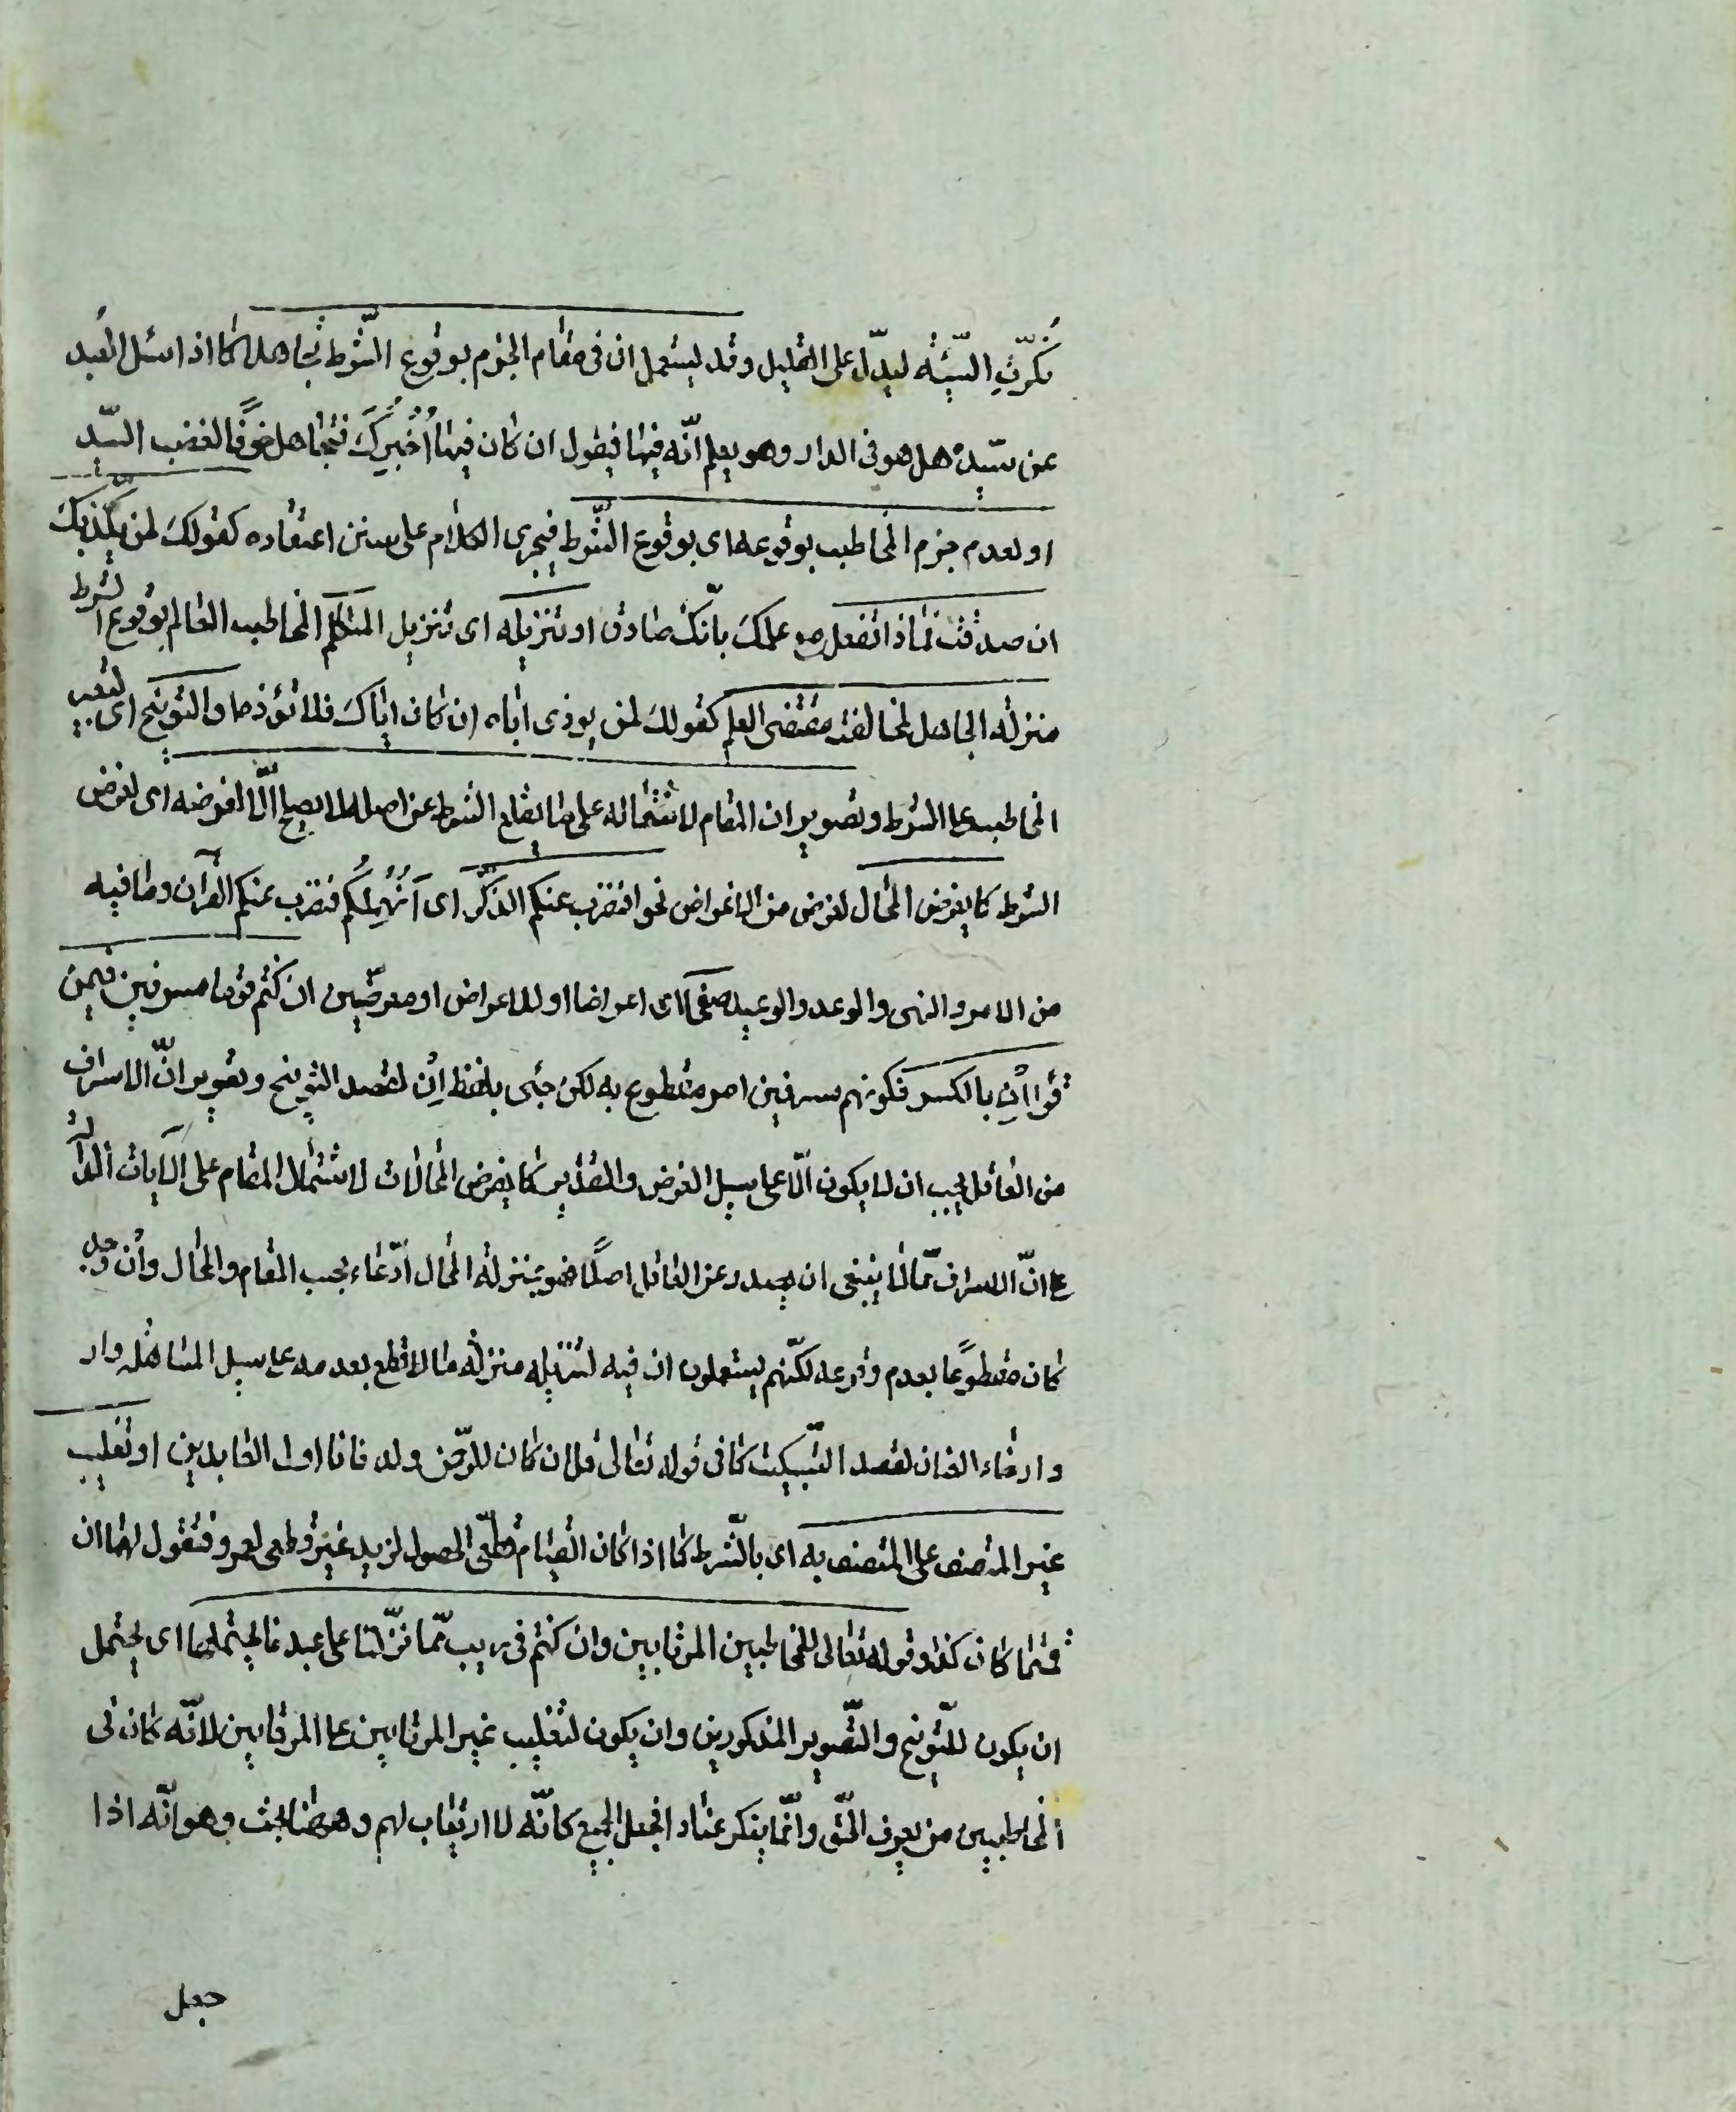 نكّرت السّيّئة ليدلّ على التقليل وقد يستعمل ان في مقام الجزم بوقوع الشّرط تجاهلا كما اذا سئل العبد
عن سيّده هل هو في الدار وهو يعلم انّه فيها فيقول ان كان فيها اُخْبِرُكَ فيتجاهل خوفًا لغضب السّيد
او لعدم جزم المخاطب بوقوعه اى بوقوع الشّرط فيجرى الكلام على سنن اعتقاده كقولك لمن يكذّبك
ان صدقت فماذا تفعل مع علمك بانّك صادق او تنزيله اى تنزيل المتكلّم المخاطب العالم بوقوع الشرط
منزلة الجاهل لمخالفته مقتضى العلم كقولك لمن يوذى اباه ان كان اباك فلا تؤذه او التوبيخ اى لتعيير
المخاطب على الشرط وتصوير ان المقام لاشتماله على ما يقلع الشرط عن اصله لا يصلح الّا لفرضه اى لفرض
الشرط كما يفرض المحال لغرض من الاغراض نحو افنضرب عنكم الذكر اى اَنُهْمِلُكُم فنضرب عنكم القرآن وما فيه
من الامر والنهى والوعد والوعيد صفحًا اى اعراضا او للاعراض او معرضين ان كنتم قوما مسرفين فيمن
قرأ اِن بالكسر فكونهم مسرفين امر مقطوع به لكن جئى بلفظ اِنْ لقصد التوبيخ وتصوير انّ الاسراف
من العاقل يجب ان لا يكون الّا على سبيل الفرض والتقدير كما يفرض المحالات لاشتمال المقام على الآيات الدالّة
على انّ الاسراف ممّا لا ينبغى ان يصدر عن العاقل اصلًا فهو بمنزلة المحال ادّعاء بحسب المقام والمحال وان
كان مقطوعًا بعدم وقوعه لكنّهم يستعملون ان فيه لتنزيله منزلة ما لا قطع بعدمه على سبيل المساهلة وار
وارخاء العنان لقصد التّبكيت كما فى قوله تعالى قل ان كان للرّحمن ولد فانا اول العابدين او تغليب
غير المتصف على المتصف به اى بالشّرط كما اذا كان القيام قطعّى الحصول لزيد غير قطعى لعمرو فتقول لهما ان
قمتما كان كذا وقوله تعالى للمخاطبين المرتابين وان كنتم فى ريب ممّا نزّلنا على عبدنا يحتملهما اى يحتمل
ان يكون للتّوبيخ والتّصوير المذكورين وان يكون لتغليب غير المرتابين على المرتابين لانّه كان فى
المخاطبين من يعرف الحق وانّما ينكر عنادا فجعل الجميع كانّه لا ارتياب لهم وههنا بحث وهو انّه اذا
جعل